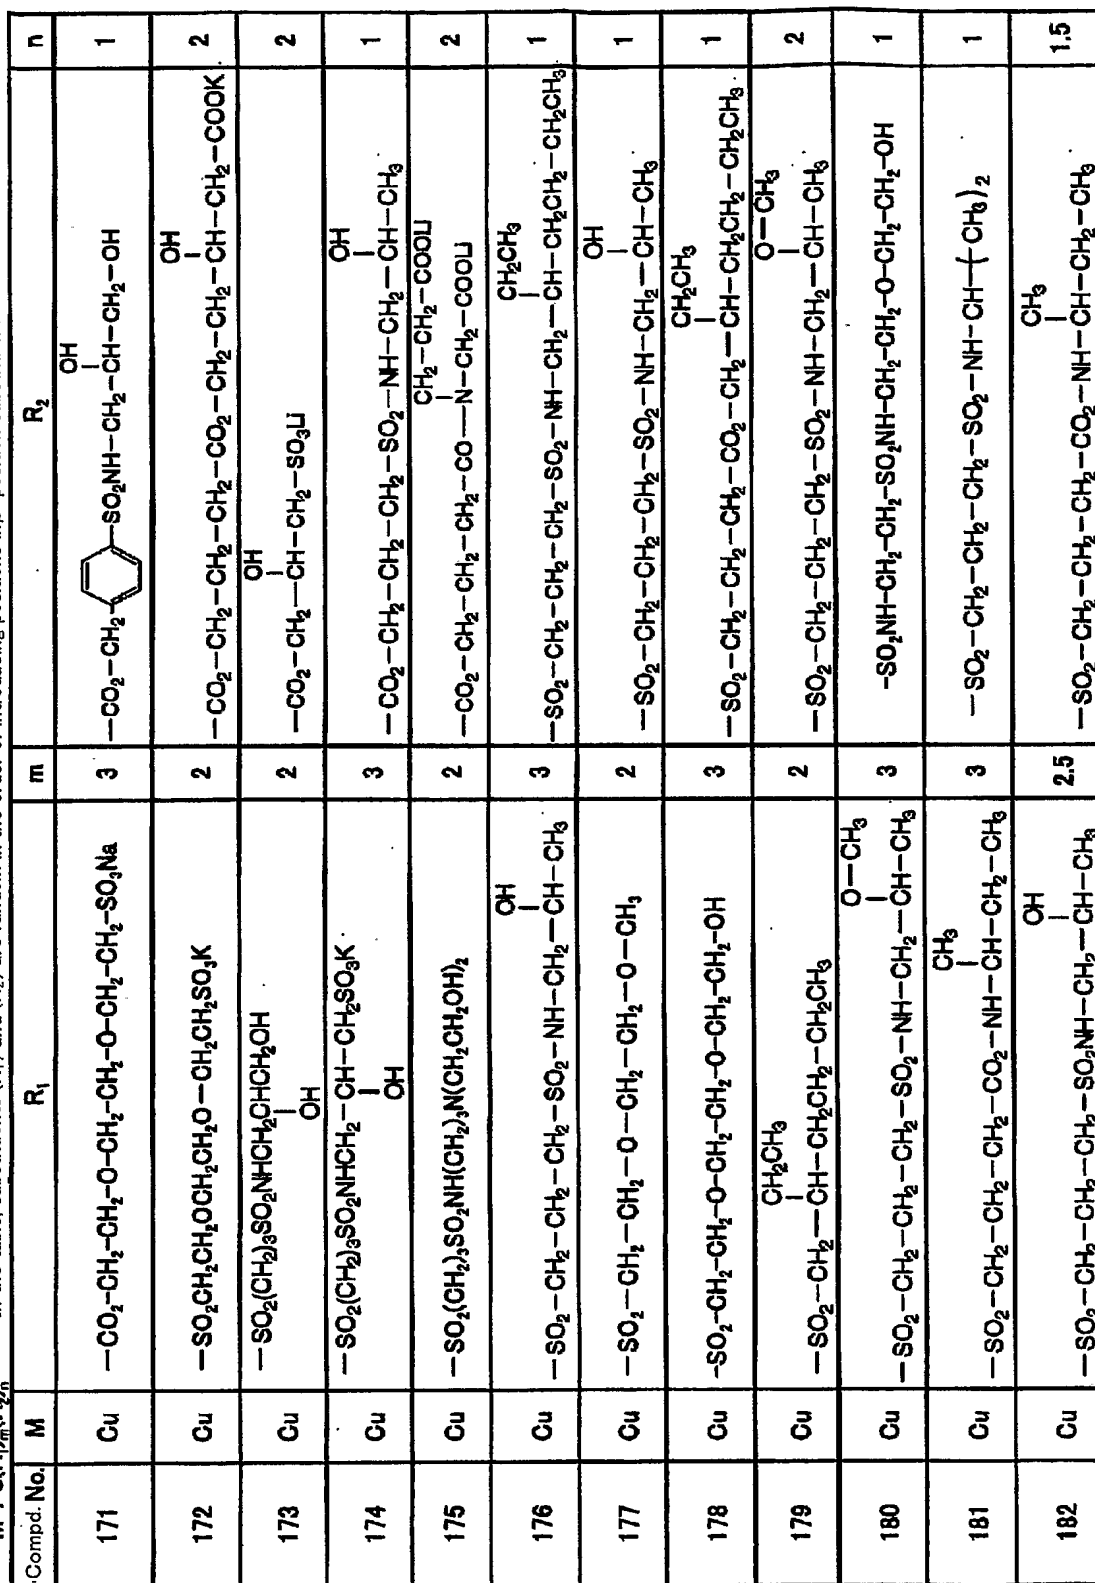 Compd. No. M R₁ m R₂ n
171 Cu —CO₂-CH₂-CH₂-O-CH₂-CH₂-O-CH₂-CH₂-SO₃Na 3 —CO₂—CH₂—⌬—SO₂NH—CH₂—CH(OH)—CH₂—OH 1
172 Cu —SO₂CH₂CH₂OCH₂CH₂O—CH₂CH₂SO₃K 2 —CO₂—CH₂—CH₂—CH₂—CO₂—CH₂—CH₂—CH(OH)—CH₂—COOK 2
173 Cu —SO₂(CH₂)₃SO₂NHCH₂CH(OH)CH₂OH 2 —CO₂—CH₂—CH(OH)—CH₂—SO₃Li 2
174 Cu —SO₂(CH₂)₃SO₂NHCH₂—CH(OH)—CH₂SO₃K 3 —CO₂—CH₂—CH₂—CH₂—SO₂—NH—CH₂—CH(OH)—CH₃ 1
175 Cu —SO₂(CH₂)₃SO₂NH(CH₂)₃N(CH₂CH₂OH)₂ 2 —CO₂—CH₂—CH₂—CH₂—CO—N(CH₂—CH₂—COOLi)—CH₂—COOLi 2
176 Cu —SO₂—CH₂—CH₂—CH₂—SO₂—NH—CH₂—CH(OH)—CH₃ 3 —SO₂—CH₂—CH₂—CH₂—SO₂—NH—CH₂—CH(CH₂CH₃)—CH₂CH₂—CH₂CH₃ 1
177 Cu —SO₂—CH₂—CH₂—O—CH₂—CH₂—O—CH₃ 2 —SO₂—CH₂—CH₂—CH₂—SO₂—NH—CH₂—CH(OH)—CH₃ 1
178 Cu -SO₂-CH₂-CH₂-O-CH₂-CH₂-O-CH₂-CH₂-OH 3 —SO₂—CH₂—CH₂—CH₂—CO₂—CH₂—CH(CH₂CH₃)—CH₂CH₂—CH₂CH₃ 1
179 Cu —SO₂—CH₂—CH(CH₂CH₃)—CH₂CH₂—CH₂CH₃ 2 —SO₂—CH₂—CH₂—CH₂—SO₂—NH—CH₂—CH(O—CH₃)—CH₃ 2
180 Cu —SO₂—CH₂—CH₂—CH₂—SO₂—NH—CH₂—CH(O—CH₃)—CH₃ 3 -SO₂NH-CH₂-CH₂-SO₂NH-CH₂-CH₂-O-CH₂-CH₂-OH 1
181 Cu —SO₂—CH₂—CH₂—CH₂—CO₂—NH—CH(CH₃)—CH₂—CH₃ 3 —SO₂—CH₂—CH₂—CH₂—SO₂—NH—CH—(CH₃)₂ 1
182 Cu —SO₂—CH₂—CH₂—CH₂—SO₂NH—CH₂—CH(OH)—CH₃ 2.5 —SO₂—CH₂—CH₂—CH₂—CO₂—NH—CH(CH₃)—CH₂—CH₃ 1.5